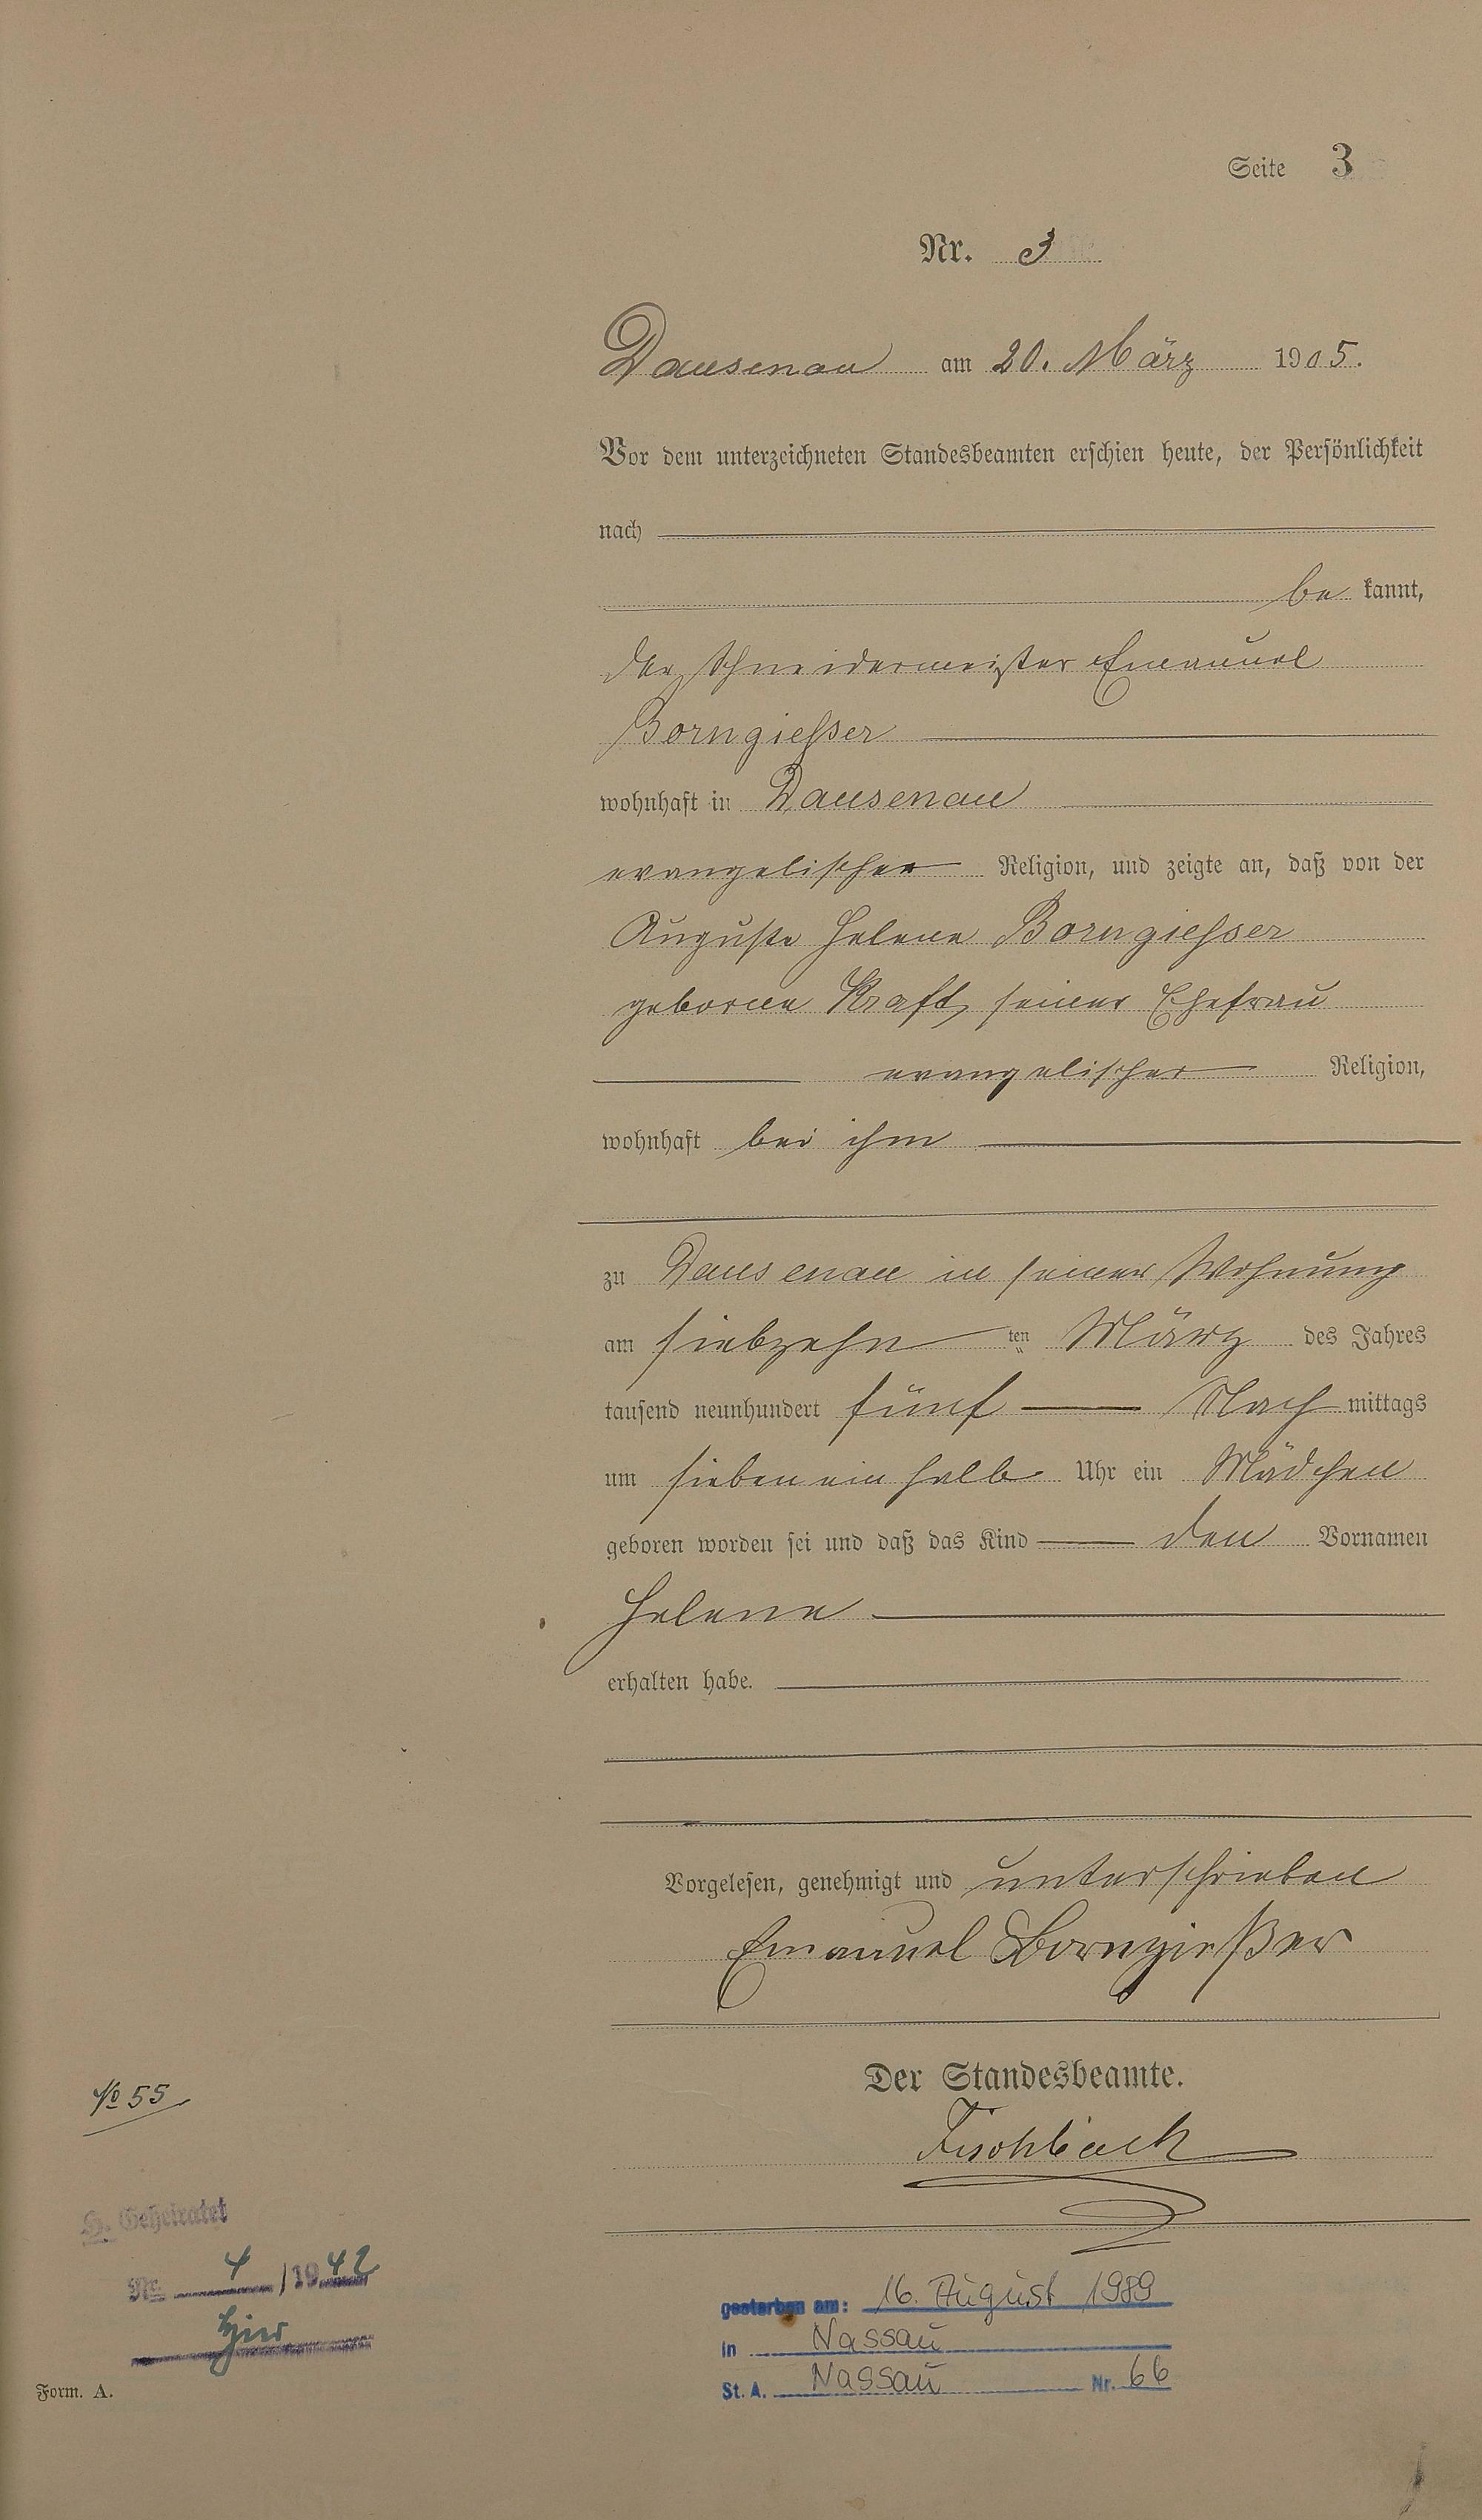 Seite 3
Nr. 3
Dausenau am 20. März 1905.
Vor dem unterzeichneten Standesbeamten erschien heute, der Persönlichkeit
nach
be kannt,
der Schneidermeister Emanuel
Borngiesser
wohnhaft in Dausenau
evangelischer Religion, und zeigte an, daß von der
Auguste Helene Borngiesser
geborene Kraft, seiner Ehefrau
evangelischer Religion,
wohnhaft bei ihm
zu Dausenau in seiner Wohnung
am siebzehn ten März des Jahres
tausend neunhundert fünf Nach mittags
um sieben ein halb Uhr ein Mädchen
geboren worden sei und daß das Kind den Vornamen
Helene
erhalten habe.
Vorgelesen, genehmigt und unterschrieben
Emanuel Borngießer
Der Standesbeamte.
Fischbach
№ 55
H. Geheiratet
Nr. 4 /1942
hier
gestorben am: 16. August 1989
in Nassau
St. A. Nassau Nr. 66
Form. A.